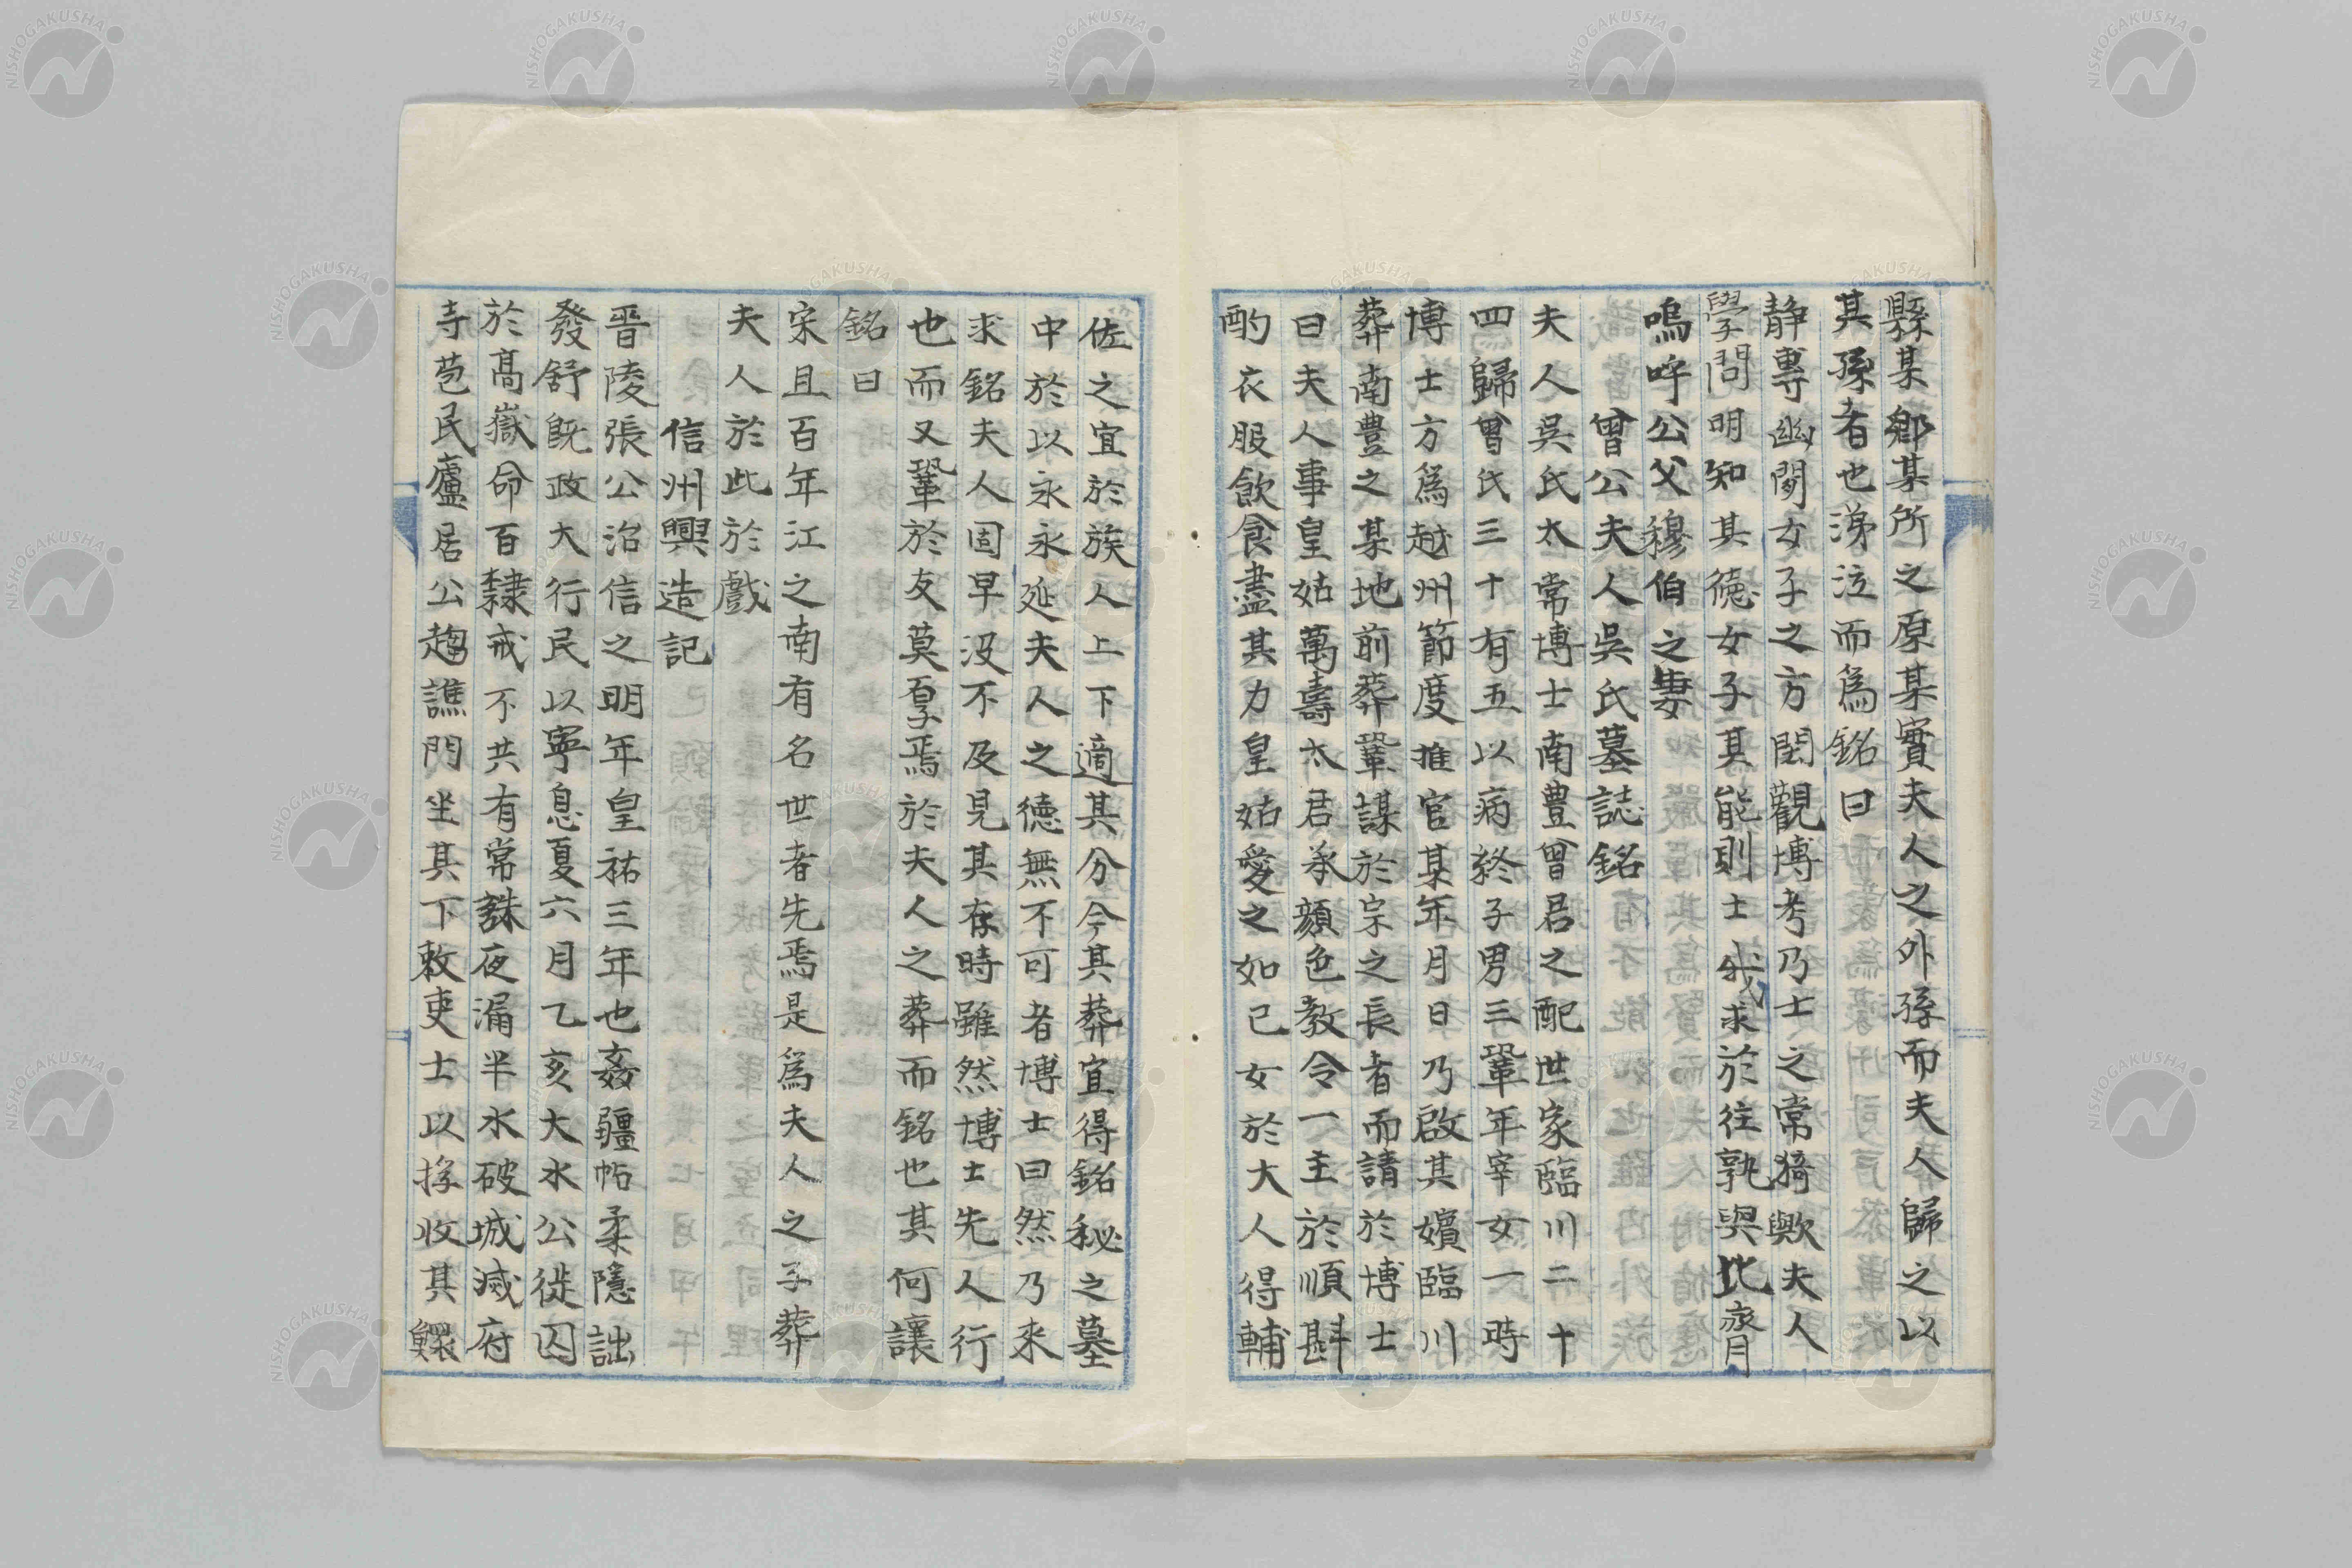 縣某鄉某所之原某實夫人之外孫而夫人歸之以
其孫者也涕泣而爲銘曰
靜專幽閒女子之方閎觀博考乃士之常猗歟夫人
學問明知其德女子其能則士我求於往孰與比齊
嗚呼公父穆伯之妻
曾公夫人吳氏墓誌銘
夫人吳氏太常博士南豊曾君之配世家臨川二十
四歸曾氏三十有五以病終子男三鞏年宰女一時
博士方爲越州節度推官某年月日乃啟其嬪臨川
葬南豊之某地前葬鞏謀於宗之長者而請於博士
曰夫人事皇姑萬壽太君承顏色教令一主於順斟
酌衣服飲食盡其力皇姑愛之如己女於大人得輔
佐之宜於族人上下適其分今其葬宜得銘秘之墓
中於以永永延夫人之德無不可者博士曰然乃來
求銘夫人固早没不及見其存時雖然博士先人行
也而又鞏於友莫厚焉於夫人之葬而銘也其何讓
銘曰
宋且百年江之南有名世者先焉是爲夫人之子葬
夫人於此於戲
信州興造記
晉陵張公治信之明年皇祐三年也姦疆帖柔隱詘
發舒既政大行民以寧息夏六月乙亥大水公徙囚
於高嶽命百隸戒不共有常誅夜漏半水破城滅府
寺苞民廬居公趨譙門坐其下敕吏士以桴收其鰥
NISHOGAKUSHA